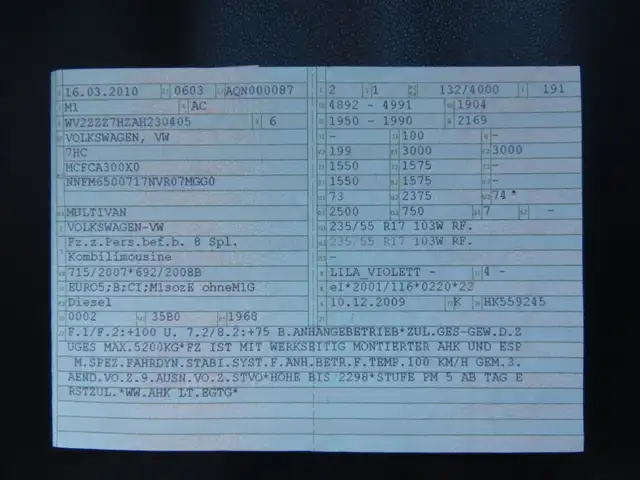 16.03.2010 0603 AQN000087
M1 AC
WV2ZZZ7HZAH230405 6
VOLKSWAGEN, VW
7HC
MCFCA300X0
NNFM6500717NVR07MGG0
MULTIVAN
VOLKSWAGEN-VW
Fz.z.Pers.bef.b. 8 Spl.
Kombilimousine
715/2007*692/2008B
EURO5;B;CI;M1sozE ohneM1G
Diesel
0002 35B0 1968
2 1 132/4000 191
4892 - 4991 1904
1950 - 1990 2169
- 100 -
199 3000 3000
1550 1575 -
1550 1575 -
73 2375 74*
2500 750 7 -
235/55 R17 103W RF.
235/55 R17 103W RF.
-
LILA_VIOLETT - 4 -
e1*2001/116*0220*22
10.12.2009 K HK559245
F.1/F.2:+100 U. 7.2/8.2:+75 B.ANHANGEBETRIEB*ZUL.GES-GEW.D.Z
UGES MAX.5200KG*FZ IST MIT WERKSEITIG MONTIERTER AHK UND ESP
M.SPEZ.FAHRDYN.STABI.SYST.F.ANH.BETR.F.TEMP.100 KM/H GEM.3.
AEND.VO.Z.9.AUSN.VO.Z.STVO*HÖHE BIS 2298*STUFE PM 5 AB TAG E
RSTZUL.*WW.AHK LT.EGTG*